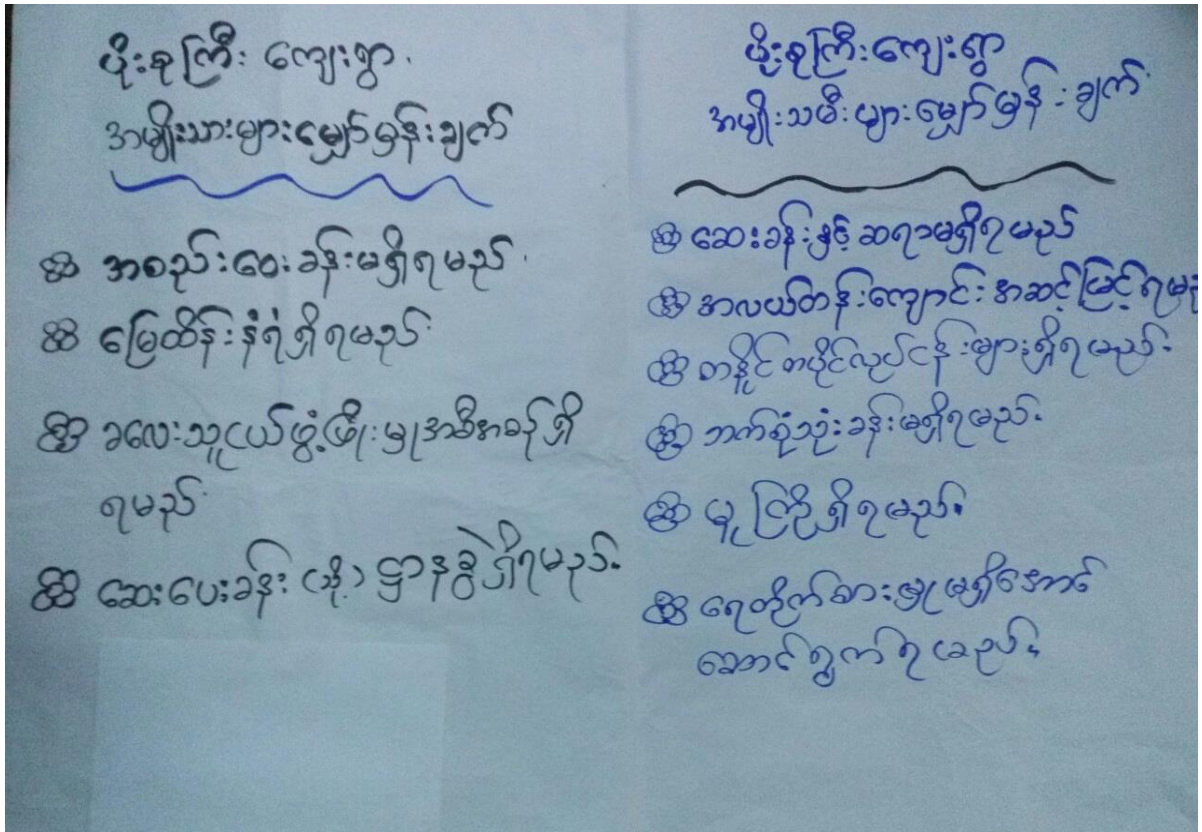 ပိုးစုကြီး ကျေးရွာ
အမျိုးသားများမျှော်မှန်းချက်
အစည်းဝေးခန်းမရှိရမည်
မြေထိန်းနံရံရှိရမည်
ခလေးသူငယ်ဖွံ့ဖြိုးမှုအစီအစဉ်ရှိ
ရမည်
ဆေးပေးခန်း (သို့) ဌာနခွဲရှိရမည်။
ပိုးစုကြီးကျေးရွာ
အမျိုးသမီးများမျှော်မှန်းချက်
ဆေးခန်းနှင့်ဆရာမရှိရမည်
အလယ်တန်းကျောင်းအဆင့်မြှင့်ရမည်
တနိုင်တပိုင်လုပ်ငန်းများရှိရမည်။
ဘက်စုံသုံးခန်းမရှိရမည်။
မူကြိုရှိရမည်။
ရေတိုက်စားမှုမရှိအောင်
ဆောင်ရွက်ရမည်။